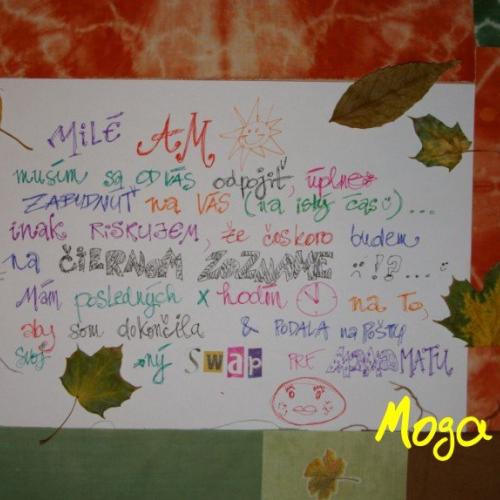 MiLÉ AM
musím sa OD VÁS odpojiť, úplne
ZABUDNÚŤ na VÁS (na istý čas :) ...
inak RISKUJEM, že čoskoro budem
na ČIERNOM ZOZNAME :!?...:
Mám posledných x hodín na to,
aby som dokončila & PODALA na POŠTU
svoj ný swap PRE MATU
Moga